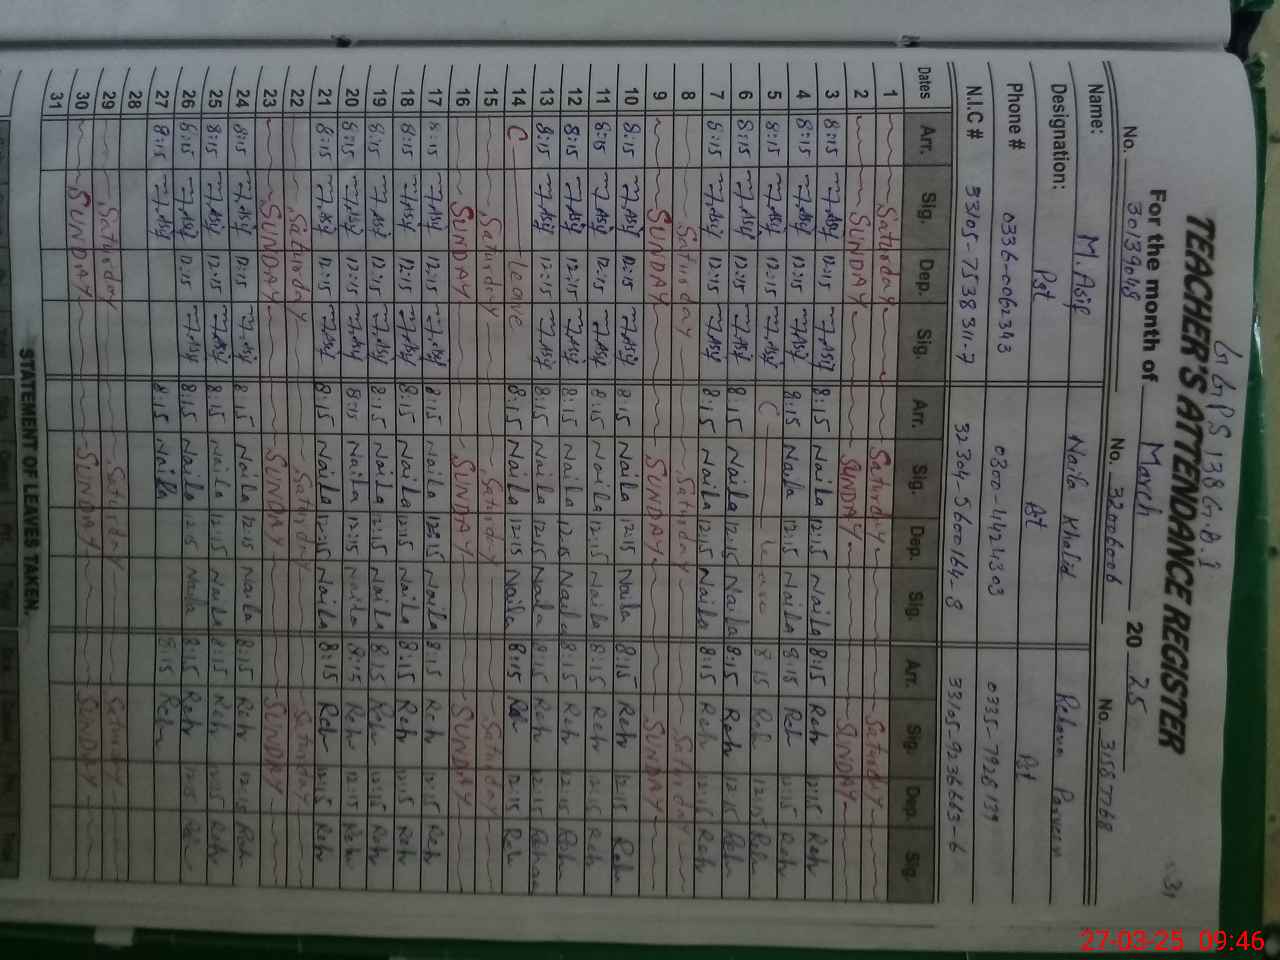 GGPS 138 G.B.
TEACHER'S ATTENDANCE REGISTER
For the month of March 2025
No. 30139048 No. 32006006 No. 31587768
Name: M. Asif Naila Khalid Rehana Parveen
Designation: Pst Pst
Phone # 0336-0062343 0300-4424303 0335-7928139
N.I.C # 33105-7538311-7 32304-5600164-8 33105-9236663-6
Dates Arr. Sig. Dep. Sig. Arr. Sig. Dep. Sig. Arr. Sig. Dep. Sig.
1 Saturday Saturday Saturday
2 SUNDAY SUNDAY SUNDAY
3 8:15 M.Asif 12:15 M.Asif 8:15 Naila 12:15 Naila 8:15 Reh 12:15 Reh
4 8:15 M.Asif 12:15 M.Asif 8:15 Naila 12:15 Naila 8:15 Reh 12:15 Reh
5 8:15 M.Asif 12:15 M.Asif C Leave 8:15 Reh 12:15 Reh
6 8:15 M.Asif 12:15 M.Asif 8:15 Naila 12:15 Naila 8:15 Reh 12:15 Reh
7 8:15 M.Asif 12:15 M.Asif 8:15 Naila 12:15 Naila 8:15 Reh 12:15 Reh
8 Saturday Saturday Saturday
9 SUNDAY SUNDAY SUNDAY
10 8:15 M.Asif 12:15 M.Asif 8:15 Naila 12:15 Naila 8:15 Reh 12:15 Reh
11 8:15 M.Asif 12:15 M.Asif 8:15 Naila 12:15 Naila 8:15 Reh 12:15 Reh
12 8:15 M.Asif 12:15 M.Asif 8:15 Naila 12:15 Naila 8:15 Reh 12:15 Reh
13 8:15 M.Asif 12:15 M.Asif 8:15 Naila 12:15 Naila 8:15 Reh 12:15 Rehana
14 C Leave 8:15 Naila 12:15 Naila 8:15 Reh 12:15 Reh
15 Saturday Saturday Saturday
16 SUNDAY SUNDAY SUNDAY
17 8:15 M.Asif 12:15 M.Asif 8:15 Naila 12:15 Naila 8:15 Reh 12:15 Reh
18 8:15 M.Asif 12:15 M.Asif 8:15 Naila 12:15 Naila 8:15 Reh 12:15 Reh
19 8:15 M.Asif 12:15 M.Asif 8:15 Naila 12:15 Naila 8:15 Reh 12:15 Reh
20 8:15 M.Asif 12:15 M.Asif 8:15 Naila 12:15 Naila 8:15 Reh 12:15 Reh
21 8:15 M.Asif 12:15 M.Asif 8:15 Naila 12:15 Naila 8:15 Reh 12:15 Reh
22 Saturday Saturday Saturday
23 SUNDAY SUNDAY SUNDAY
24 8:15 M.Asif 12:15 M.Asif 8:15 Naila 12:15 Naila 8:15 Reh 12:15 Reh
25 8:15 M.Asif 12:15 M.Asif 8:15 Naila 12:15 Naila 8:15 Reh 12:15 Reh
26 8:15 M.Asif 12:15 M.Asif 8:15 Naila 12:15 Naila 8:15 Reh 12:15 Reh
27 8:15 M.Asif 8:15 Naila 8:15 Reh
28
29 Saturday Saturday Saturday
30 SUNDAY SUNDAY SUNDAY
31
STATEMENT OF LEAVES TAKEN.
27-03-25 09:46